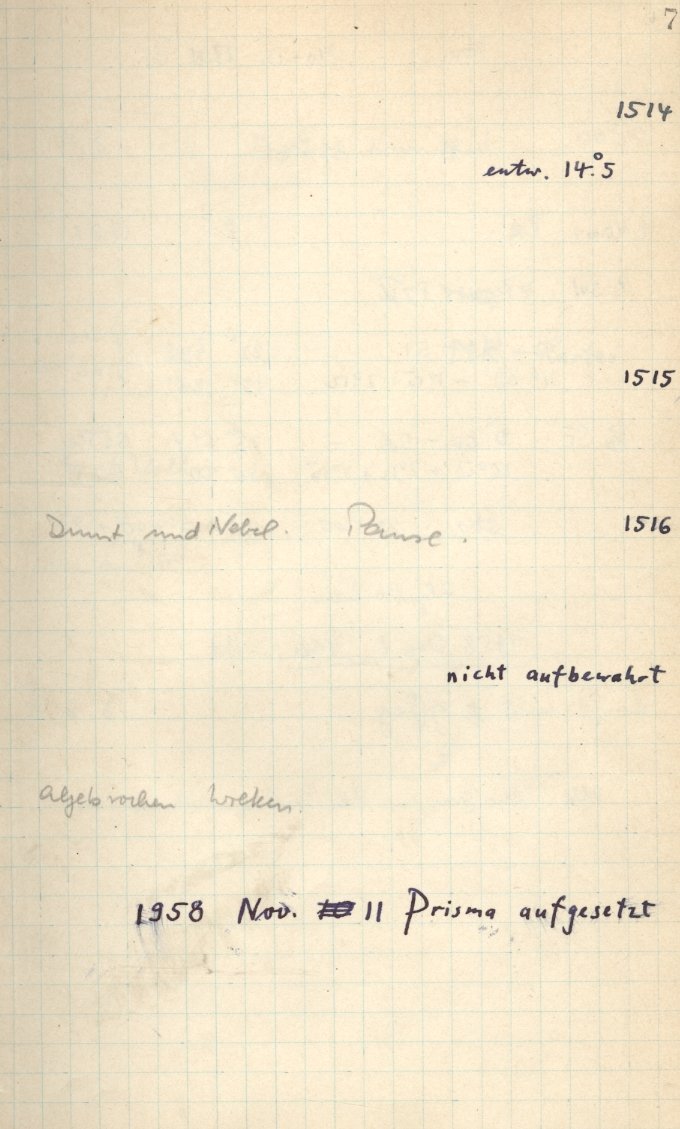 7
1514
entw. 14.°5
1515
Dunst und Nebel. Pause. 1516
nicht aufbewahrt
abgebrochen Wolken.
1958 Nov. 11 Prisma aufgesetzt